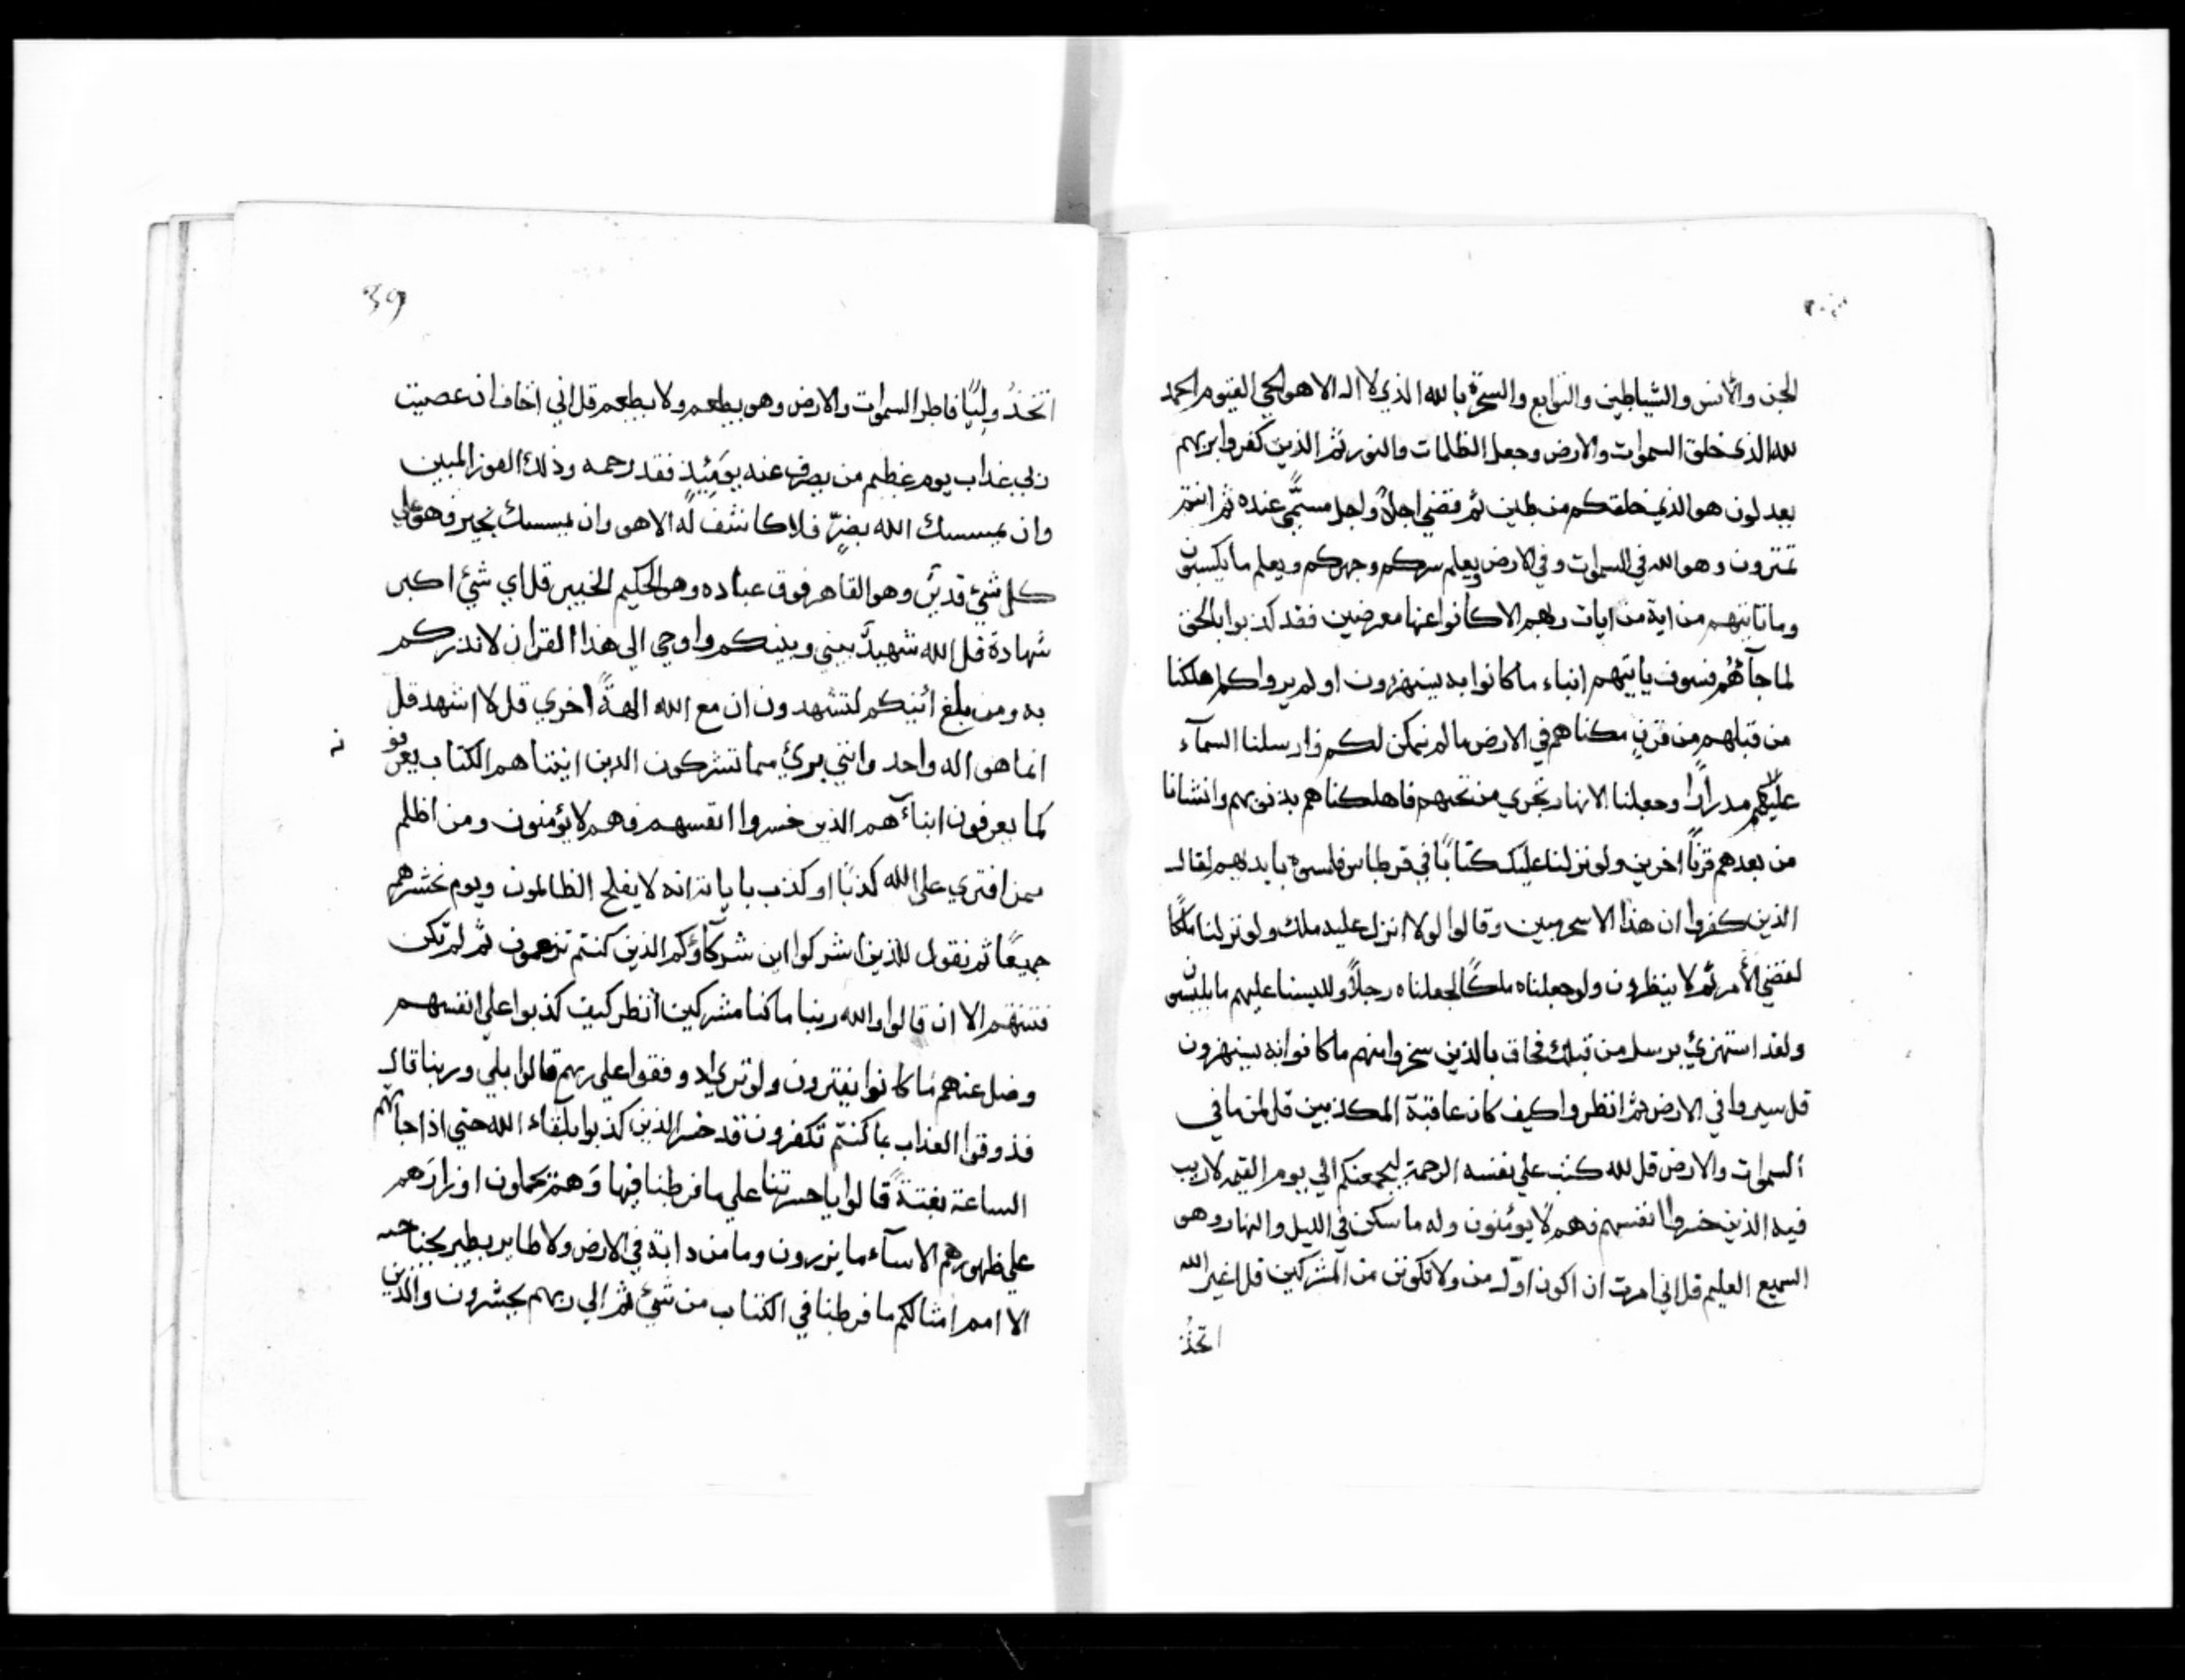 الجن والأنس والشياطين والتوابع والسحرة بالله الذي لا اله الا هو الحي القيوم الحمد
لله الذي خلق السموات والارض وجعل الظلمات والنور ثم الذين كفروا بربهم
يعدلون هو الذي خلقكم من طين ثم قضي اجلاً واجل مسمًّي عنده ثم انتم
تمترون وهو الله في السموات وفي الارض يعلم سركم وجهركم ويعلم ما تكسبون
وما تاتيهم من اية من ايات ربهم الا كانوا عنها معرضين فقد كذبوا بالحق
لما جآءهُم فسوف ياتيهم انباء ما كانوا به يستهزون اولم يروا كم اهلكنا
من قبلهم من قرنٍ مكناهم في الارض ما لم نمكن لكم وارسلنا السمآء
عليهم مدرارًا وجعلنا الانهار تجري من تحتهم فاهلكناهم بذنوبهم وانشانا
من بعدهم قرنًا اخرين ولو نزلنا عليك كتابًا في قرطاس فلمسوه بايديهم لقال
الذين كفروا ان هذا الا سحر مبين وقالوا لولا انزل عليه ملك ولو نزلنا ملكًا
لقضي الأمر ثم لا ينظرون ولو جعلناه ملكًا لجعلناه رجلاً وللبسنا عليهم ما يلبسون
ولقد استهزئ برسل من قبلك فحاق بالذين سخروا منهم ما كانوا به يستهزون
قل سيروا في الارض ثم انظروا كيف كان عاقبة المكذبين قل لمن ما في
السموات والارض قل لله كتب علي نفسه الرحمة ليجمعنكم الي يوم القيمه لا ريب
فيه الذين خسروا انفسهم فهم لا يومٔنون وله ما سكن في الليل والنهار وهو
السميع العليم قل اني امرت ان اكون اوّل من ولا تكونن من المشركين قل اغير الله
اتخذُ
39
اتخذُ وليًّا فاطر السموات والارض وهو يطعم ولا يطعم قل اني اخاف ان عصيت
ربي عذاب يوم عظيم من يصرف عنه يومَئِذٍ فقد رحمه وذلك الفوز المبين
وان يمسسك الله بضرٍّ فلا كاشف له الا هو وان يمسسك بخير فهو علي
كل شيئ قديرٌ وهو القاهر فوق عباده وهو الحكيم الخبير قل اي شيئ اكبر
شهادة قل الله شهيدٌ بيني وبينكم واوحي الي هذا القران لانذركم
به ومن بلغ ائنيكم لتشهدون ان مع الله الهةً اخري قل لا اشهد قل
انما هو اله واحد وانني بريئ مما تشركون الذين اتيناهم الكتاب يعرفو نه
كما يعرفون ابنآءهم الذين خسروا انفسهم فهم لا يؤمنون ومن اظلم
ممن افتري علي الله كذبًا او كذب باياته انه لا يفلح الظالمون ويوم نحشرهم
جميعًا ثم نقول للذين اشركوا اين شركآؤكم الذين كنتم تزعمون ثم لم تكن
فتنتهم الا ان قالوا والله ربنا ما كنا مشركين انظر كيف كذبوا علي انفسهم
وضل عنهم ما كانوا يفترون ولو تري اذ وقفوا علي ربهم قالوا بلي وربنا قال
فذوقوا العذاب بما كنتم تكفرون قد خسر الذين كذبوا بلقاء الله حتي اذا جآتهم
الساعة بغتةً قالوا يا حسرتنا علي ما فرطنا فيها وَهمْ يحملون اوزارَهم
علي ظهورهم الا سآء ما يزرون وما من دابة في الارض ولا طاير يطير بجناحيه
الا امم امثالكم ما فرطنا في الكتاب من شيئ ثم الي ربهم يحشرون والذين